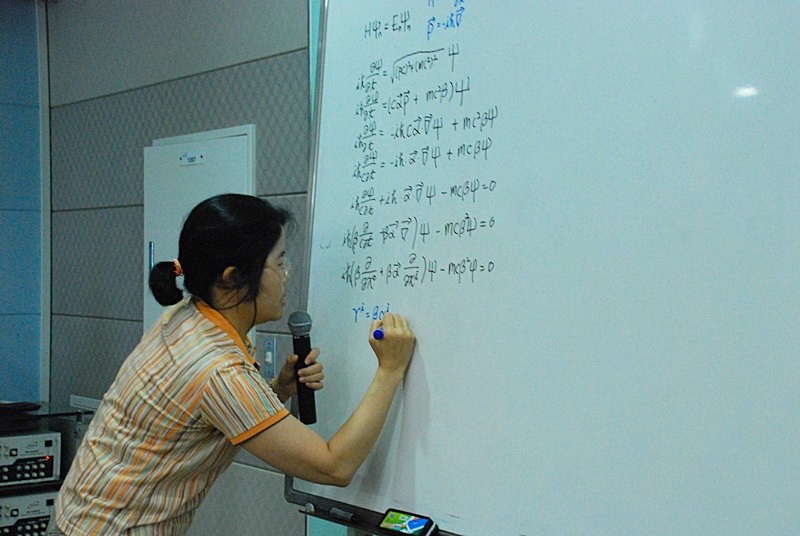 Hψₙ = Eₙψₙ
p⃗ = -iħ∇⃗
iħ ∂ψ/∂t = √((pc)² + (mc²)²) ψ
iħ ∂ψ/∂t = (cα⃗p⃗ + mc²β)ψ
iħ ∂ψ/∂t = -iħcα⃗∇⃗ψ + mc²βψ
iħ ∂ψ/c∂t = -iħ·α⃗∇⃗ψ + mcβψ
iħ ∂ψ/c∂t + iħ·α⃗∇⃗ψ - mcβψ = 0
iħ(β ∂/c∂t + βα⃗∇⃗)ψ - mcβ²ψ = 0
iħ(β ∂/∂x⁰ + βα⃗ ∂/∂xⁱ)ψ - mcβ²ψ = 0
γⁱ = βαⁱ